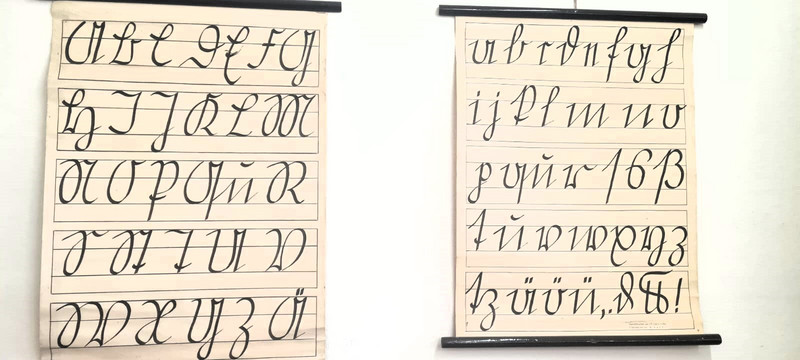 A B C D E F G
H I J K L M
N O P Qu R
S St T U V
W X Y Z Ä
a b c d e f g h
i j k l m n o
p qu r ſ s ß
t u v w x y z
tz ä ö ü , . & !